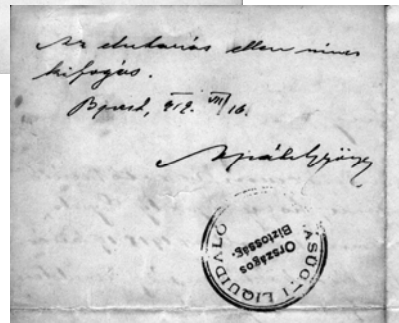 Az elutazás ellen nincs
kifogás.
Bpest, 919. VIII/16.
ÁSÜGYI LIQUIDÁLÓ
Országos
Biztosság.